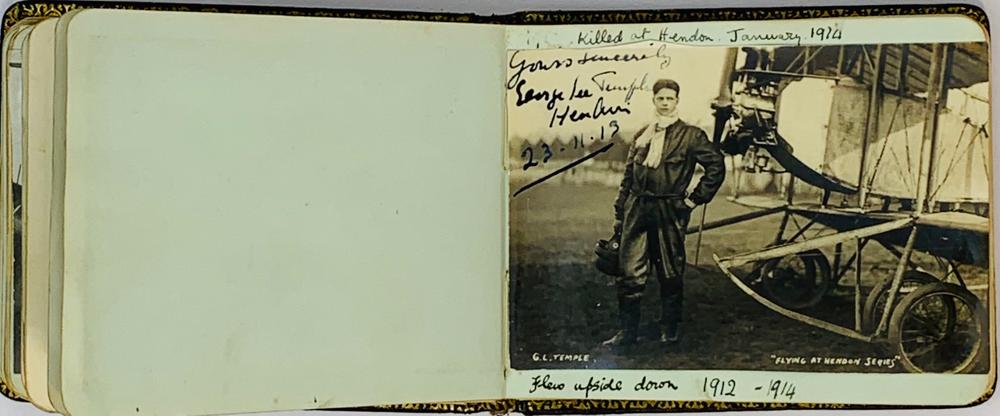 Killed at Hendon. January. 1914
Yours sincerely
George Lee Temple
Hendon
23.11.13
G.L. TEMPLE.
"FLYING AT HENDON SERIES"
Flew upside down 1912 - 1914